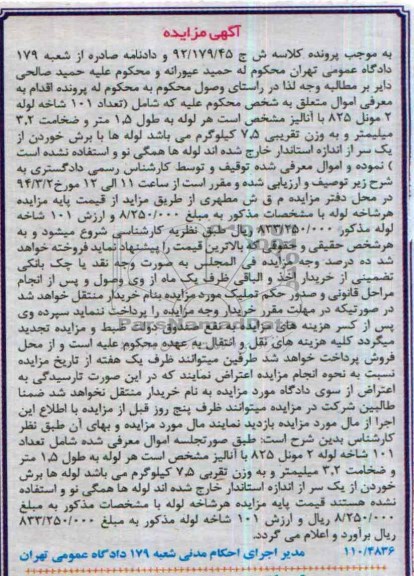 آگهی مزایده
به موجب پرونده کلاسه ش ج ۹۲/۱۷۹/۴۵ و دادنامه صادره از شعبه ۱۷۹
دادگاه عمومی تهران محکوم له حمید عیورانه و محکوم علیه حمید صالحی
دایر بر مطالبه وجه لذا در راستای وصول محکوم به محکوم له پرونده اقدام به
معرفی اموال متعلق به شخص محکوم علیه که شامل (تعداد ۱۰۱ شاخه لوله
۲ مونل ۸۲۵ با آنالیز مشخص است هر لوله به طول ۱,۵ متر و ضخامت ۳,۲
میلیمتر و به وزن تقریبی ۷,۵ کیلوگرم می باشد لوله ها با برش خوردن از
یک سر از اندازه استاندار خارج شده اند لوله ها همگی نو و استفاده نشده است
) نموده و اموال معرفی شده توقیف و توسط کارشناس رسمی دادگستری به
شرح زیر توصیف و ارزیابی شده و مقرر است از ساعت ۱۱ الی ۱۲ مورخ ۹۴/۳/۲
در محل دفتر مزایده م ق ش مطهری از طریق مزاید از قیمت پایه مزایده
هرشاخه لوله با مشخصات مذکور به مبلغ ۸/۲۵۰/۰۰۰ و ارزش ۱۰۱ شاخه
لوله مذکور ۸۳۳/۲۵۰/۰۰۰ ریال طبق نظریه کارشناسی شروع میشود و به
هرشخص حقیقی و حقوقی که بالاترین قیمت را پیشنهاد نماید فروخته خواهد
شد ده درصد وجه مزایده فی المجلس به صورت وجه نقد یا چک بانکی
تضمینی از خریدار اخذ و الباقی ظرف یک ماه از وی وصول و پس از انجام
مراحل قانونی و صدور حکم تملیک مورد مزایده بنام خریدار منتقل خواهد شد
در صورتیکه در مهلت مقرر خریدار وجه مزایده را پرداخت ننماید سپرده وی
پس از کسر هزینه های مزایده بنفع صندوق دولت ضبط و مزایده تجدید
میگردد کلیه هزینه های نقل و انتقال به عهده محکوم علیه است و از محل
فروش پرداخت خواهد شد طرفین میتوانند ظرف یک هفته از تاریخ مزایده
نسبت به نحوه انجام مزایده اعتراض نمایند که در این صورت تارسیدگی به
اعتراض از سوی دادگاه مورد مزایده به نام خریدار منتقل نخواهد شد ضمنا
طالبین شرکت در مزایده میتوانند ظرف پنج روز قبل از مزایده با اطلاع این
اجرا از مال مورد مزایده بازدید نمایند مال مورد مزایده و بهای آن طبق نظر
کارشناس بدین شرح است: طبق صورتجلسه اموال معرفی شده شامل تعداد
۱۰۱ شاخه لوله ۲ مونل ۸۲۵ با آنالیز مشخص است هر لوله به طول ۱,۵ متر
و ضخامت ۳,۲ میلیمتر و به وزن تقربی ۷,۵ کیلوگرم می باشد لوله ها برش
خوردن از یک سر از اندازه استاندار خارج شده اند لوله ها همگی نو و استفاده
نشده هستند قیمت پایه مزایده هرشاخه لوله با مشخصات مذکور به مبلغ
۸/۲۵۰/۰۰۰ ریال و ارزش ۱۰۱ شاخه لوله مذکور به مبلغ ۸۳۳/۲۵۰/۰۰۰
ریال برآورد و اعلام می گردد.
۱۱۰/۴۸۳۶ مدیر اجرای احکام مدنی شعبه ۱۷۹ دادگاه عمومی تهران